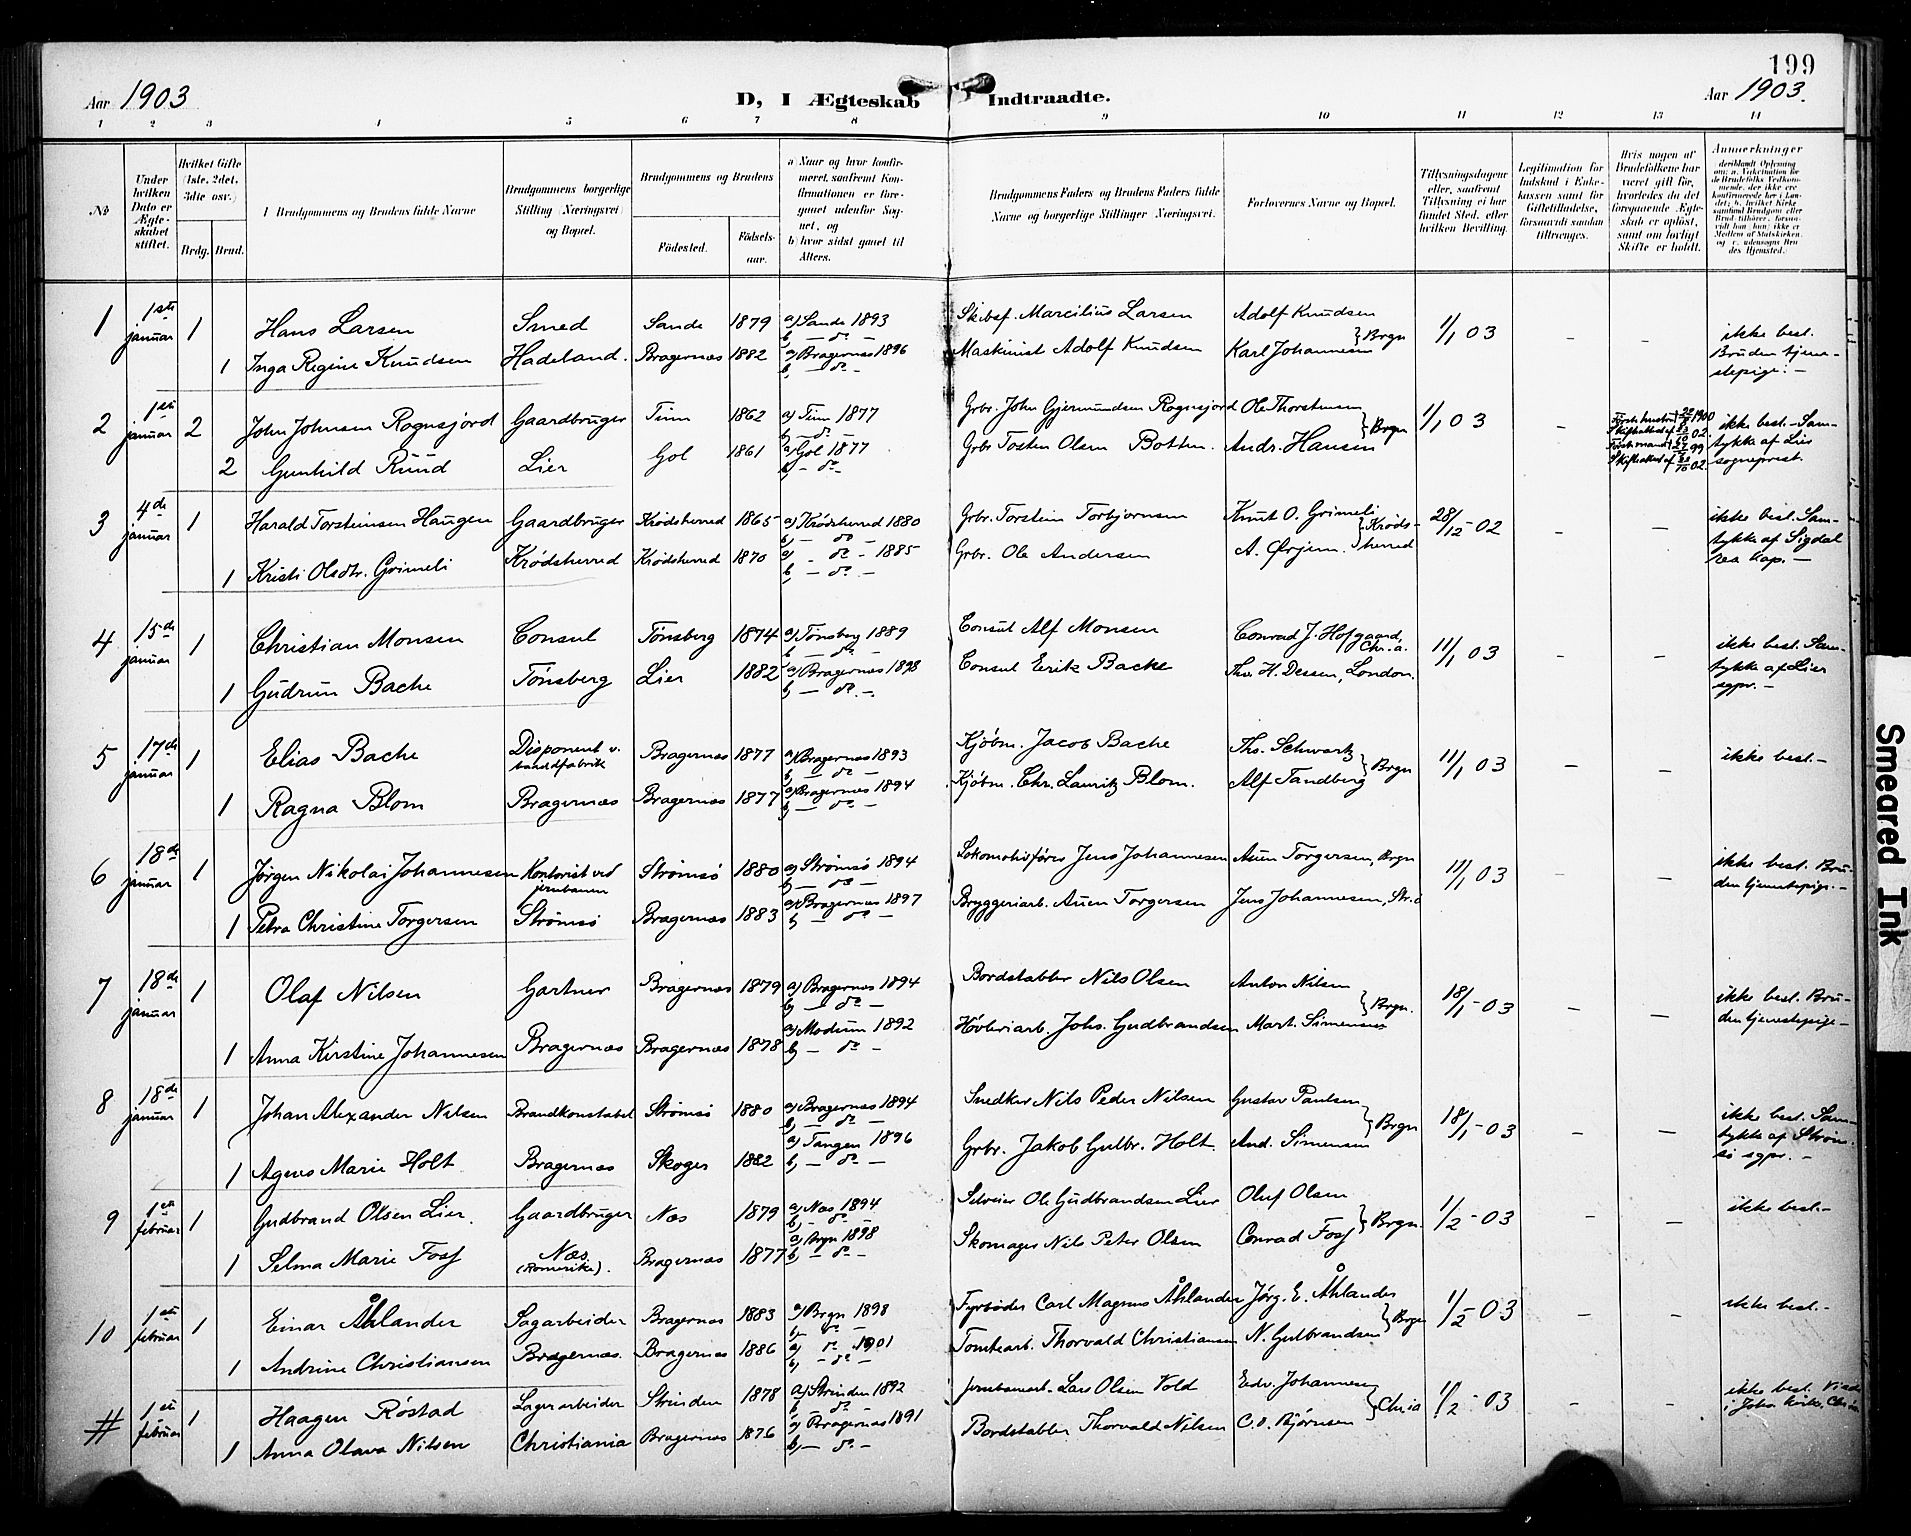 199
Aar 1903
D, I Ægteskab Indtraadte.
Aar 1903.
1 2 3 4 5 6 7 8 9 10 11 12 13 14
No
Under hvilken Dato er Ægteskabet stiftet.
Hvilket Gifte (1ste, 2det, 3die osv.)
Brdg. Brud.
Brudgommens og Brudens fulde Navne
Brudgommens borgerlige Stilling (Næringsvei) og Bopæl.
Brudgommens og Brudens
Födested.
Födsels-aar.
a) Naar og hvor konfirmeret, saafremt Konfirmationen er foregaaet udenfor Sognet, og
b) hvor sidst gaaet til Alters.
Brudgommens Faders og Brudens Faders fulde Navne og borgerlige Stillinger Næringsvei.
Forlovernes Navne og Bopæl.
Tillysningsdagene eller, saafremt Tillysning ei har fundet Sted, efter hvilken Bevilling.
Legitimation for Indskud i Enkekassen samt for Giftetilladelse, forsaavidt saadan tiltrænges.
Hvis nogen af Brudefolkene har været gift för, hvorledes da det foregaaende Ægteskab er oplöst, samt om lovligt Skifte er holdt.
Anmerkninger
1 1ste januar 1 Hans Larsen Smed Sande 1879 a) Sande 1893 b, — do — Skibsf. Marcilius Larsen Adolf Knudsen } Brgn 1/1 03 – – ikke best.
1 Inga Regine Knudsen Hadeland. Bragernæs 1882 a) Bragernæs 1896 b, — do – Maskinist Adolf Knudsen Karl Johannesen Bruden tjenestepige. –
2 1ste januar 2 John Johnsen Rognsjord Gaardbruger Tinn 1862 a) Tinn 1877 b — do — Grbr. John Gjermundsen Rognsjord Ole Thorstensen } Brgn 1/1 03 – ikke best. Sam-
2 Gunhild Ruud Lier Gol 1861 a) Gol 1877 b) – do – Grbr Tosten Olsen Botten. Andr. Hansen tykke af Lier sogneprest.
3 4de januar 1 Harald Torsteinsen Haugen Gaardbruger Krödsherred 1865 a) Krödsherred 1880 b, — do — Grbr. Torstein Torbjornsen Knut O. Grimeli } Kröds- 28/12 – 02 – – ikke best. Sam-
1 Kristi Olsdtr. Grimeli Krödsherred Krödsherred 1870 a) - do – 1885 b, — do – Grbr. Ole Andersen A. Ørjem. herred tykke af Sigdal rea kap. –
4 15de januar 1 Christian Monsen Consul Tönsberg 1874 a) Tönsberg 1889 b — do — Consul Alf Monsen Conrad J. Hofgaard, Chr.a. 11/1 03 – – ikke best. Sam-
1 Gudrun Bache Tönsberg Lier 1882 a) Bragernæs 1898 b) — do – Consul Eerik Bache Thv. H. Dessen, London. tykke af Lier sgpr. –
5 17de januar 1 Elias Bache Disponent v. baandfabrik Bragernæs 1877 a) Bragernæs 1893 b, — do — Kjöbm. Jacob Bache Ths. Schwartz } Brgn 11/1 03 – – ikke best. –
1 Ragna Blom Bragernæs Bragernæs 1877 a) Bragernæs 1894 b) — do — Kjöbm. Chr. Lauritz Blom. Alf Tandberg
6 18de januar 1 Jörgen Nikolai Johannesen Kontorist ved jernbanen Strömsö 1880 a) Strömsö 1894 b) — do — Lokomotivförer Jens Johannesen Auen Torgersen, Brgn 11/1 03 – – ikke best. Bru-
1 Petra Christine Torgersen Strömsö Bragernæs 1883 a) Bragernæs 1897 b) — do – Bryggeriarb. Auen Torgersen Jens Johannesen, Str.ö den tjenestepige. –
7 18de januar 1 Olaf Nilsen Gartner Bragernæs 1879 a) Bragernæs 1894 b) — do — Bordstabler Nils Olsen Anton Nilsen } Brgn. 18/1 – 03 – – ikke best. Bru-
1 Anna Kirstine Johannesen Bragernæs Bragernæs 1878 a) Modum 1892 b) — do – Hövleriarb. Johs. Gudbrandsen Mart. Simensen den tjenestepige –
8 18de januar 1 Johan Alexander Nilsen Brandkonstabel Strömsö 1880 a) Bragernæs 1894 b, — do — Snedker Nils Peder Nilsen Gustav Paulsen } Brgn 18/1 – 03 – – ikke best. Sam-
1 Agnes Marie Holt Bragernæs Skoger 1882 a) Tangen 1896 b, — do — Grbr. Jakob Gulbr. Holt. And. Simensen tykke af Ström-sö sgpr. –
9 1ste februar 1 Gudbrand Olsen Lier. Gaardbruger Næs 1879 a) Næs 1894 b, – do – Selveier Ole Gudbrandsen Lier Oluf Olsen } Brgn. 1/2 – 03 – – ikke best. –
1 Selma Marie Foss Næs (Romerike). Bragernæs 1877 a) Brgn 1898 b, — do – Skomager Nils Peter Olsen Conrad Foss
10 1ste februar 1 Einar Åhlander Sagarbeider Bragernæs 1883 a) Brgn 1898 b, – do – Fyrböder Carl Magnus Åhlander Jörg. E. Åhlander } Brgn 1/2 – 03 – – ikke best. –
1 Andrine Christiansen Bragernæs. Bragernæs 1886 a) do 1901 b, – do – Tomtearb. Thorvald Christiansen N. Gulbrandsen
# 1ste februar 1 Haagen Röstad Lagerarbeider Strinden 1878 a) Strinden 1892 b — do — Jernbanearb. Lars Olsen Vold Edv. Johannesen } Chr.ia 1/2 – 03 – – ikke best.
1 Anna Olava Nilsen Christiania Bragernæs 1876 a) Bragernæs 1891 b, — do – Bordstabler Thorvald Nilsen C. O. Björnsen i Johs. kirke, Chr.ia
Smeared Ink